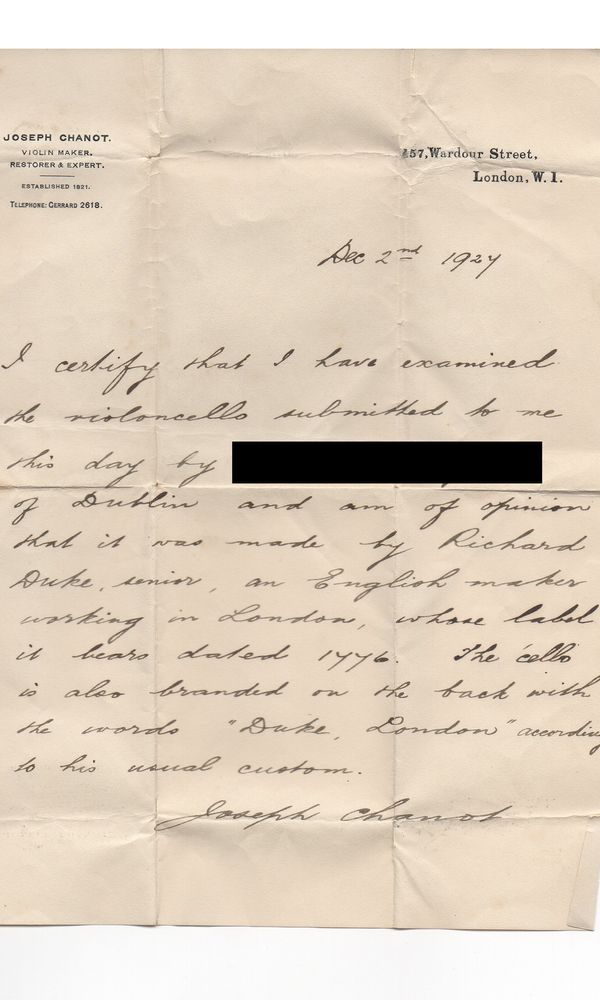 JOSEPH CHANOT.
VIOLIN MAKER.
RESTORER & EXPERT.
ESTABLISHED 1821.
TELEPHONE: GERRARD 2618.
157, Wardour Street,
London, W. 1.
Dec 2nd 1927
I certify that I have examined
the violoncello submitted to me
this day by
of Dublin and am of opinion
that it was made by Richard
Duke, senior, an English maker
working in London, whose label
it bears dated 1776. The 'cello
is also branded on the back with
the words "Duke, London" according
to his usual custom.
Joseph Chanot